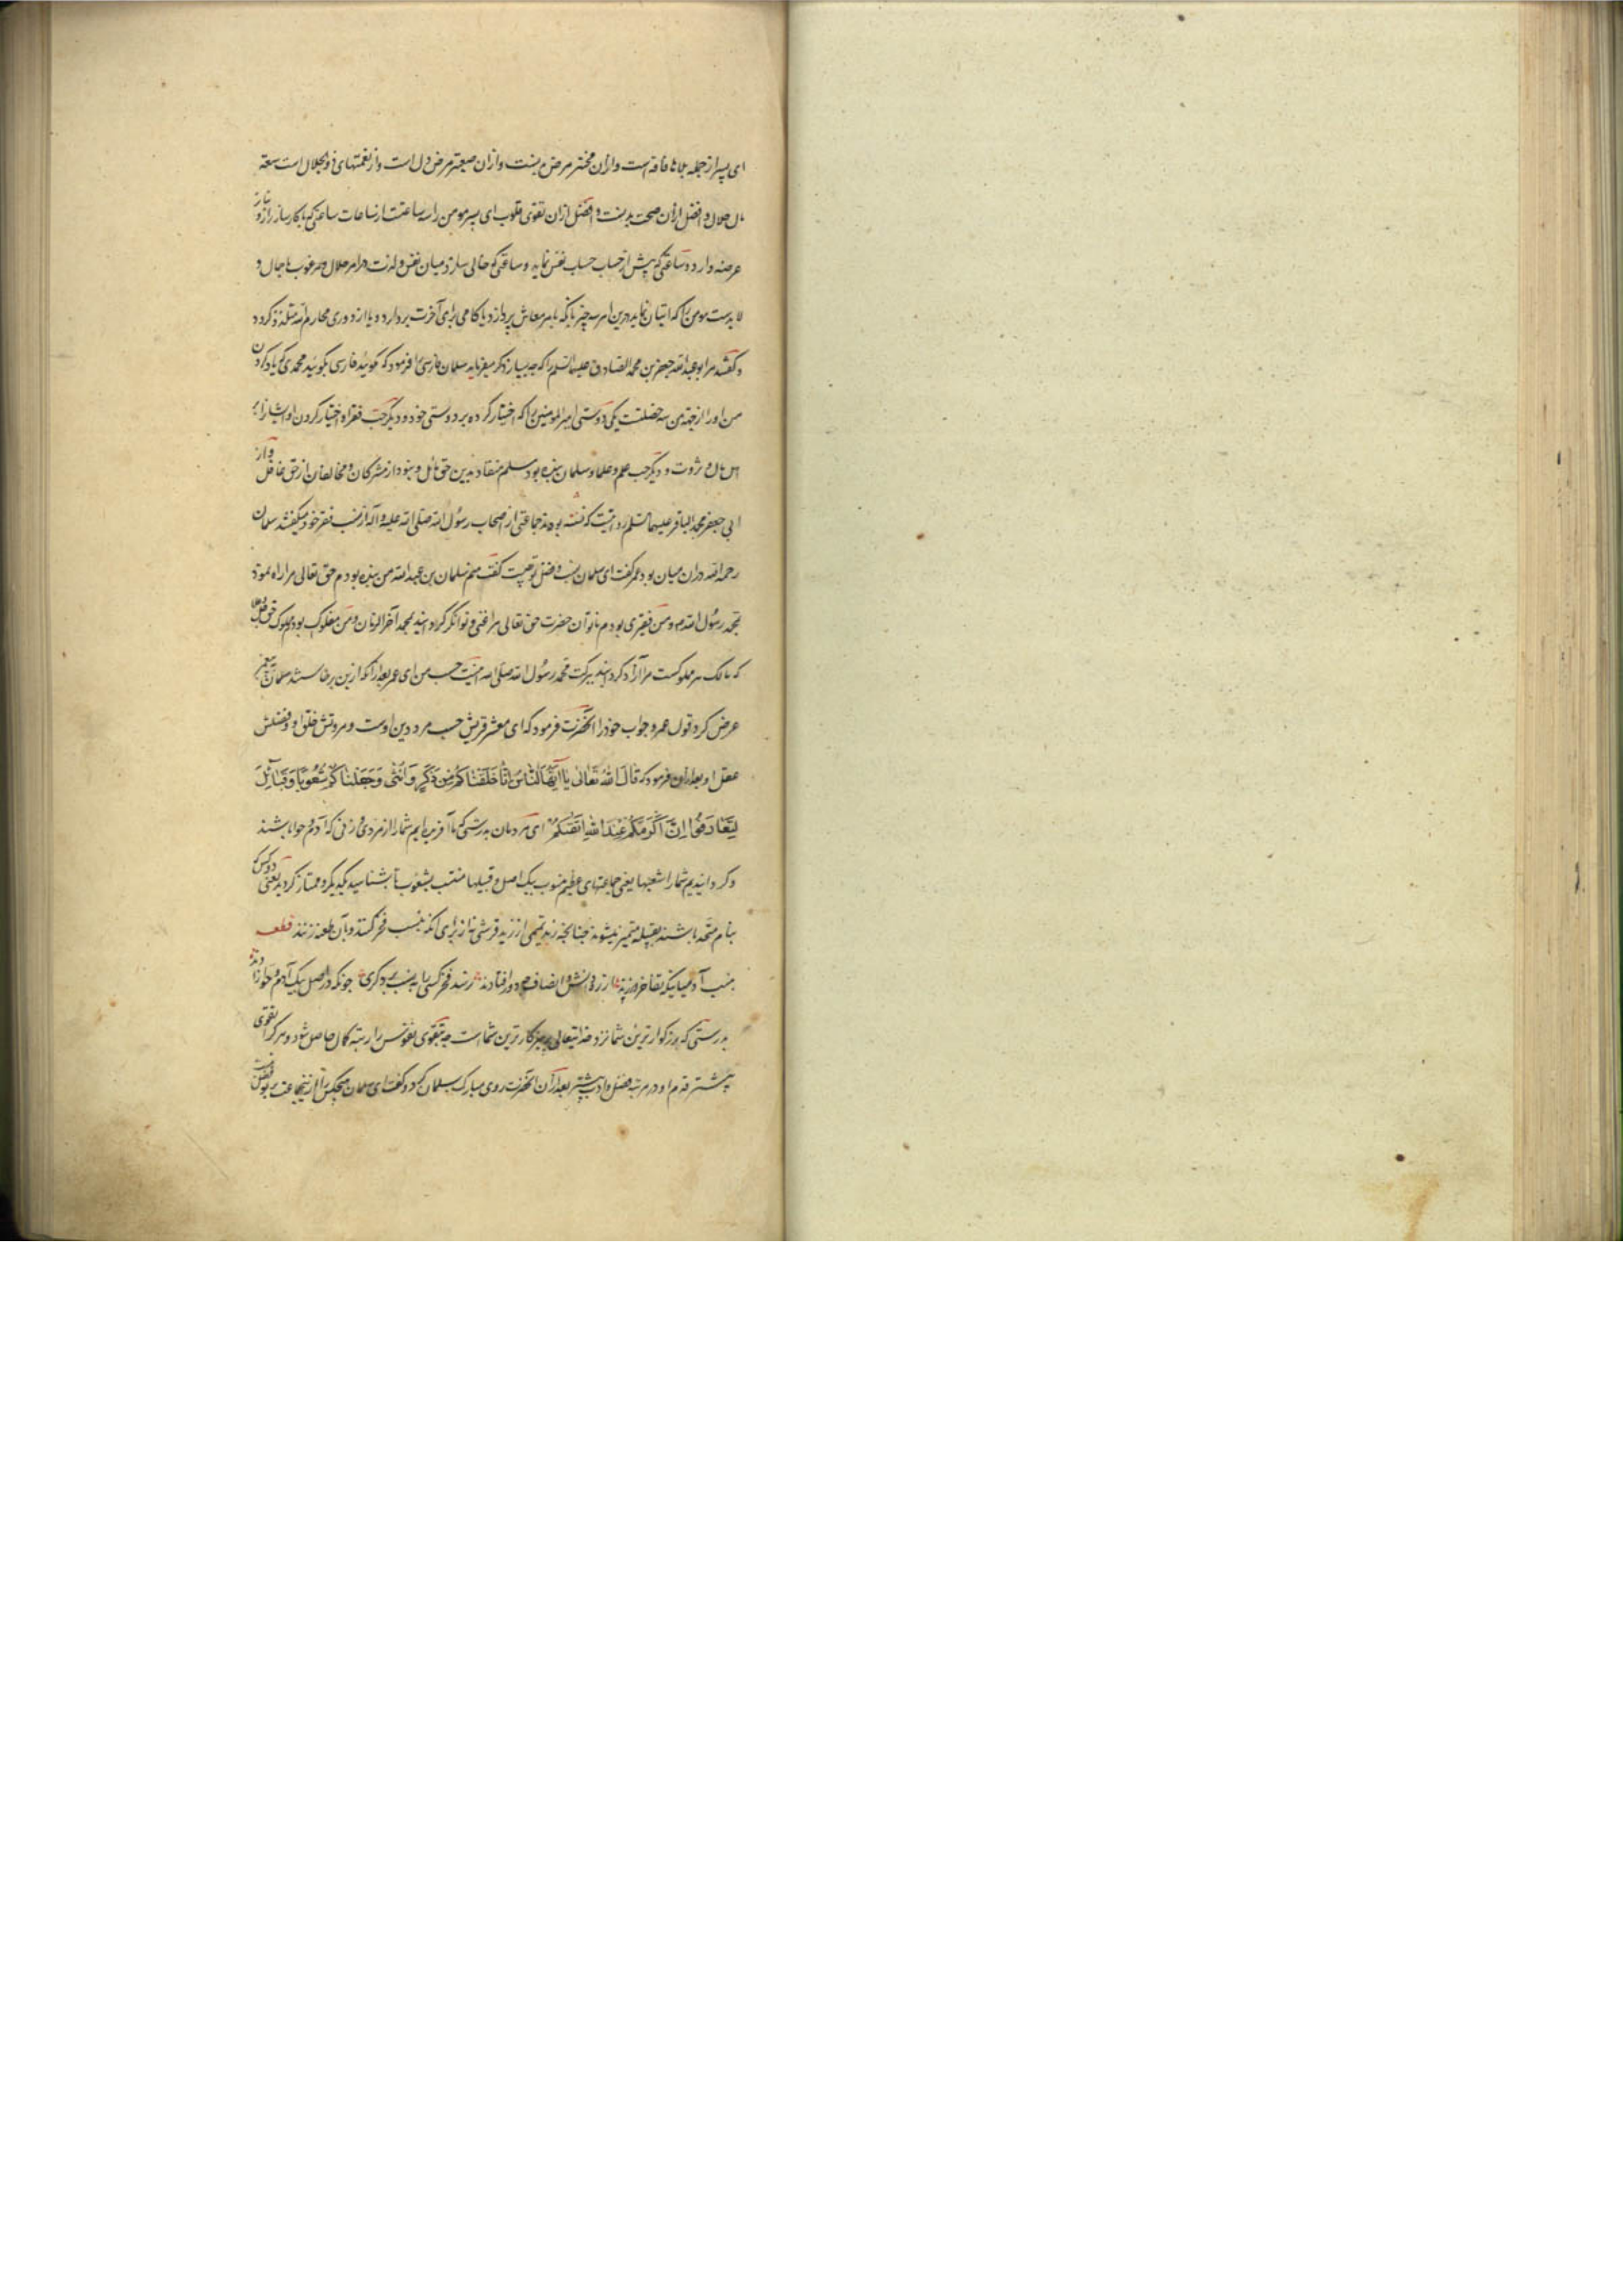 ای پسر از جمله بلاها فاقه است و از ان سختر مرض بدنست و از ان صعبتر مرض دل است و از نعمتهای ذو الجلال است سعة
مال حلال و افضل از ان صحت بدنست و افضل از ان تقوی قلوب ای پسر مومن را سه ساعتست از ساعات ساعتی که با کارساز راز و نیاز
عرضه دارد و ساعتی که پیش از حساب حساب نفس نماید و ساعتی که خالی سازد میان نفس و لذت در امر حلال و مرغوب با جمال و
لا بدست مومن را که اتیان نماید درین امر سه چیز یا آنکه بامر معاش پردازد یا کامی برای آخرت بردارد و یا از دوری محارم الله متلذذ کردد
و گفتند مر ابو عبد الله جعفر بن محمد الصادق علیهما السلم را که چه بسیار ذکر میفرماید سلمان فارسی را فرمود که مگوئید فارسی بگوئید محمدی که یاد کردن
من او را از جهت من سه خصلتست یکی دوستی امیر المومنین را که اختیار کرده بر دوستی خود و دیگر حب فقرا و اختیار کردن او ایشانرا بر
اهل مال و ثروت و دیگر حب علم و علما و سلمان بنده بود مسلم منقاد بدین حق مائل و نبود از مشرکان و مخالفان از حق غافل و از
ابی جعفر محمد الباقر علیهما السلم روایتست که نشسته بودند جماعتی از اصحاب رسول الله صلی الله علیه و آله از نسب و فخر خود میگفتند سلمان
رحمه الله در ان میان بود عمر گفت ای سلمان نسب و فضل تو چیست گفت منم سلمان بن عبد الله من بنده بودم حق تعالی مرا راه نمود
بمحمد رسول الله و من فقیری بودم ناتوان حضرت حق تعالی مرا غنی و توانگر گردانید بمحمد آخر الزمان و من مملوک بودم ملوک حق جل و علا
که مالک هر مملوکست مرا آزاد کردانید ببرکت محمد رسول الله صلی الله اینست حسب من ای عمر بعد از آنکه ازین برخاستند سلمان به پیغمبر
عرض کرد قول عمر و جواب خود را آنحضرت فرمود که ای معشر قریش حسب مرد دین اوست و مروتش خلق او و فضلش
عقل او بعد از ان فرمود که قال الله تعالی یا ایها الناس انا خلقناکم من ذکر و انثی و جعلناکم شعوبا و قبائل
لتعارفوا ان اکرمکم عند الله اتقیکم ای مردمان بدرستی که ما آفریده ایم شما را از مردی و زنی که آدم و حوا باشند
و کردانیدیم شما را شعبها یعنی جماعتهای عظیم منسوب بیک اصل و قبیلها منتسب بشعوب تا بشناسید یکدیگر و ممتاز کردید یعنی دو کس که
بنام متحد باشند بقبیله متمیز میشوند چنانچه زید تمیمی از زید قرشی نه از برای آنکه بنسب فخر کنند و بآن طعنه زنند قطعه
بنسب آدمیانیکه تفاخر ورزند از ره دانش و انصاف چه دور افتادند نرسد فخر کسی را به نسب بر دگری چونکه در اصل یک آدم و حوا زادند
بدرستی که بزرگوارترین شما نزد خدایتعالی پرهیزکارترین شماست چه بتقوی نفوس را رتبه کمال حاصل شود و هر که را تقوی
بیشتر قدم او در مرتبه فضل و ادب پیشتر بعد از ان آنحضرت روی مبارک بسلمان کرد و گفت ای سلمان هیچکس را از ینجماعت بر تو فضل نیست